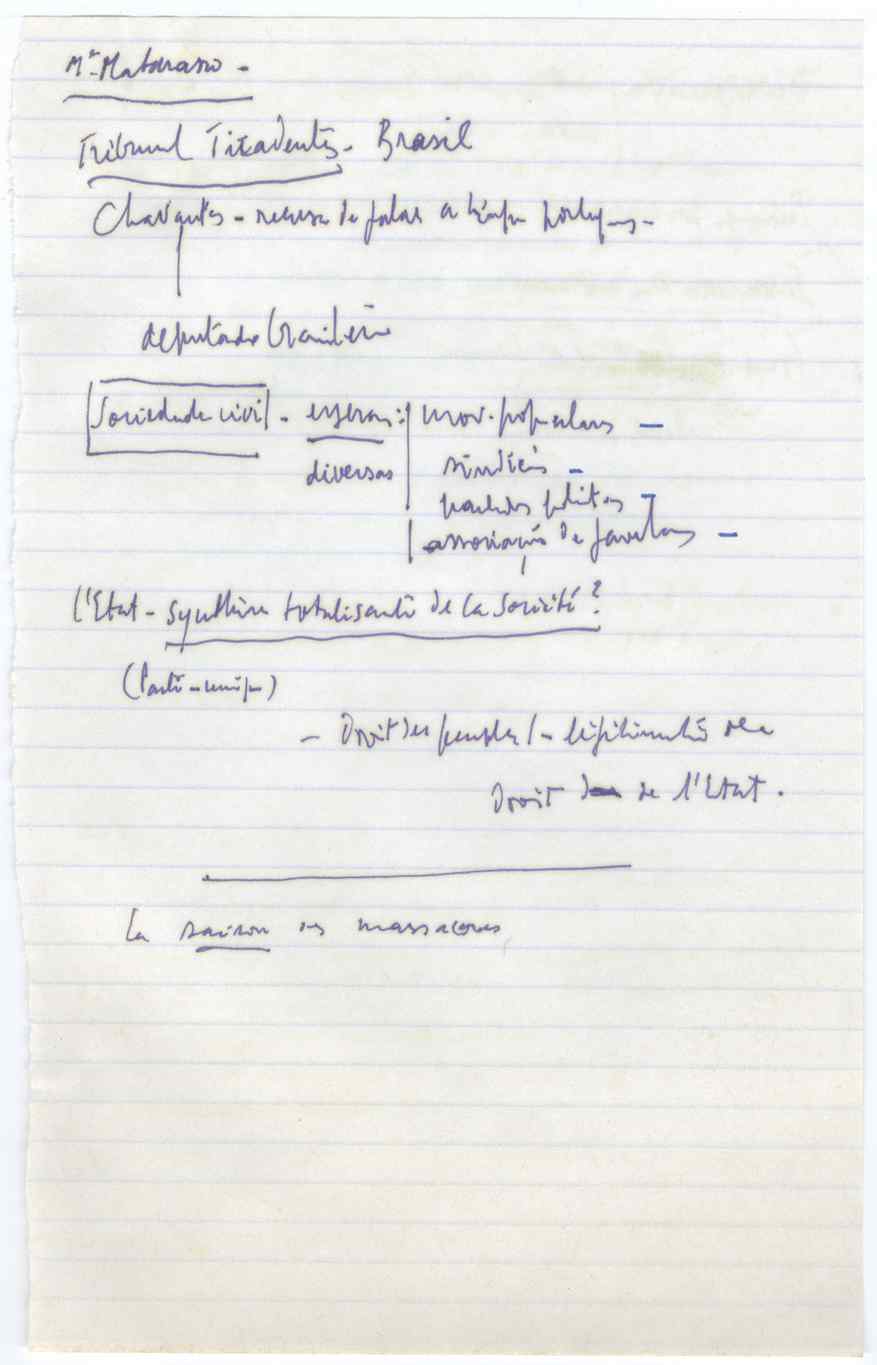 Mᵉ Matarasso -
Tribunal Tiradentes - Brasil
Chavantes - recusa de falar a língua portugues -
deputado brasileiro
Sociedade civil - esferas : mov. populares -
diversas sindicais -
partidos politicos -
associações de favelas -
l'Etat - synthèse totalisante de la société ?
(Parti-unique)
- Droit des peuples / - légitimité
Droit de l'Etat.
La saison des massacres